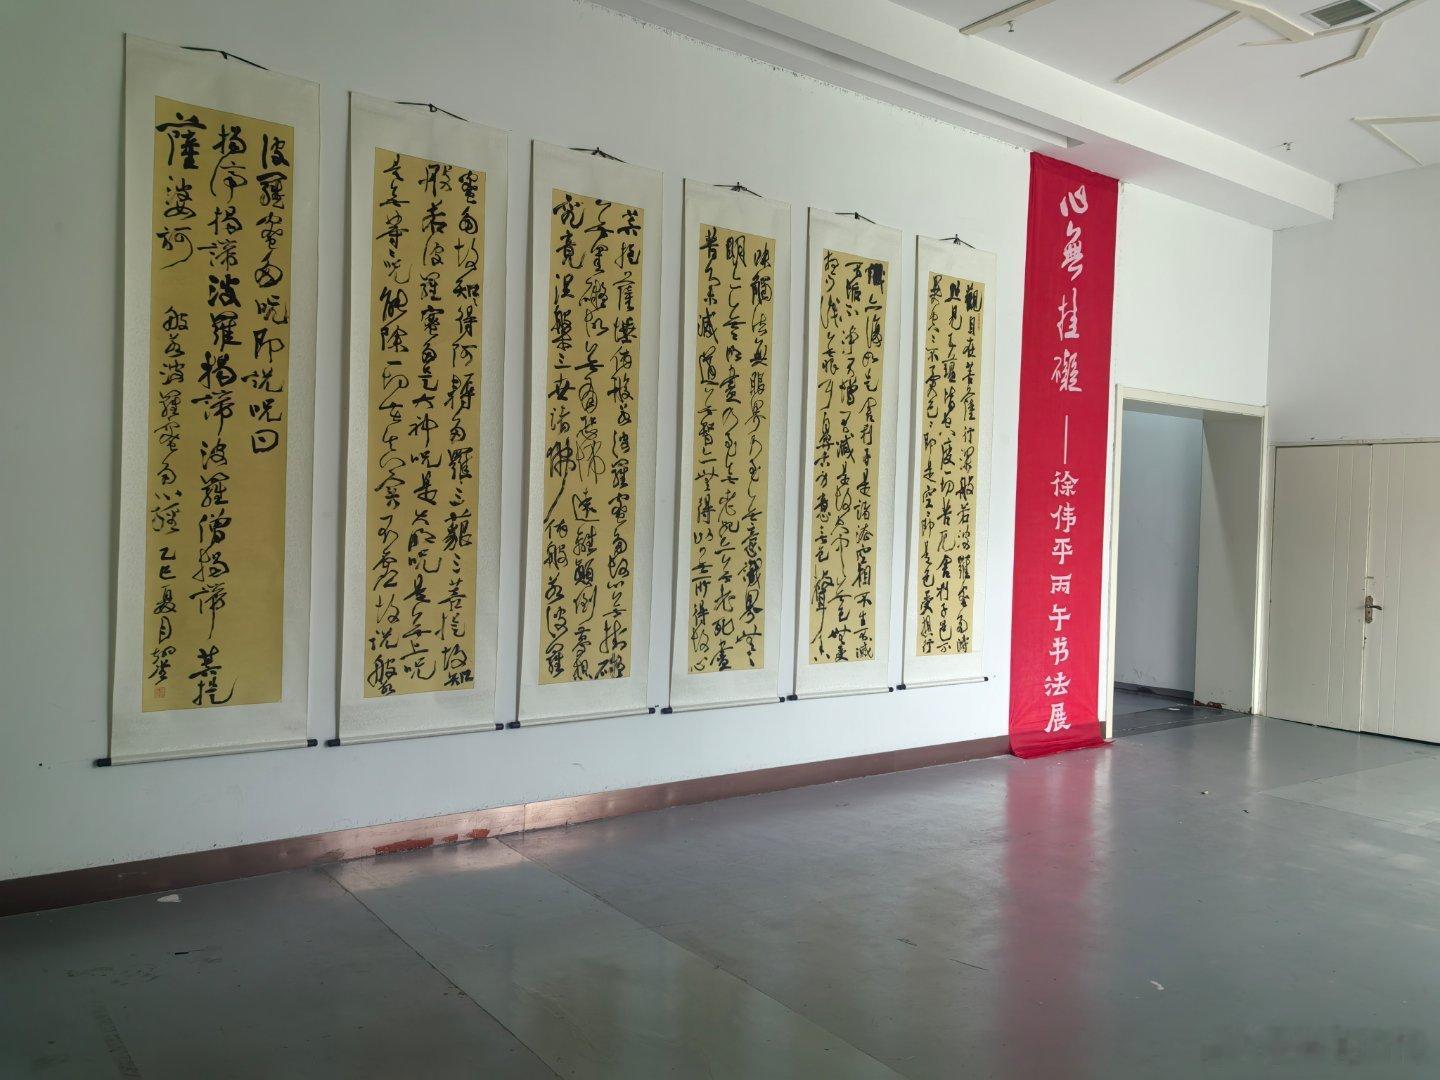 心無挂礙——徐伟平丙午书法展
觀自在菩薩行深般若波羅蜜多時
照見五蘊皆空度一切苦厄舍利子色不
異空空不異色色即是空空即是色受想行
識亦復如是舍利子是諸法空相不生不滅
不垢不淨不增不減是故空中無色無受
想行識無眼耳鼻舌身意無色聲香
味觸法無眼界乃至無意識界無無
明亦無無明盡乃至無老死亦無老死盡
無苦集滅道無智亦無得以無所得故
菩提薩埵依般若波羅蜜多故心無掛礙
無罣礙故無有恐怖遠離顛倒夢想
究竟涅槃三世諸佛依般若波羅
蜜多故知得阿耨多羅三藐三菩提故知
般若波羅蜜多是大神咒是大明咒是無上咒
是無等等咒能除一切苦真實不虛故說般若
波羅蜜多咒即說咒曰
揭諦揭諦波羅揭諦波羅僧揭諦菩提
薩婆訶
般若波羅蜜多心經 乙巳夏月